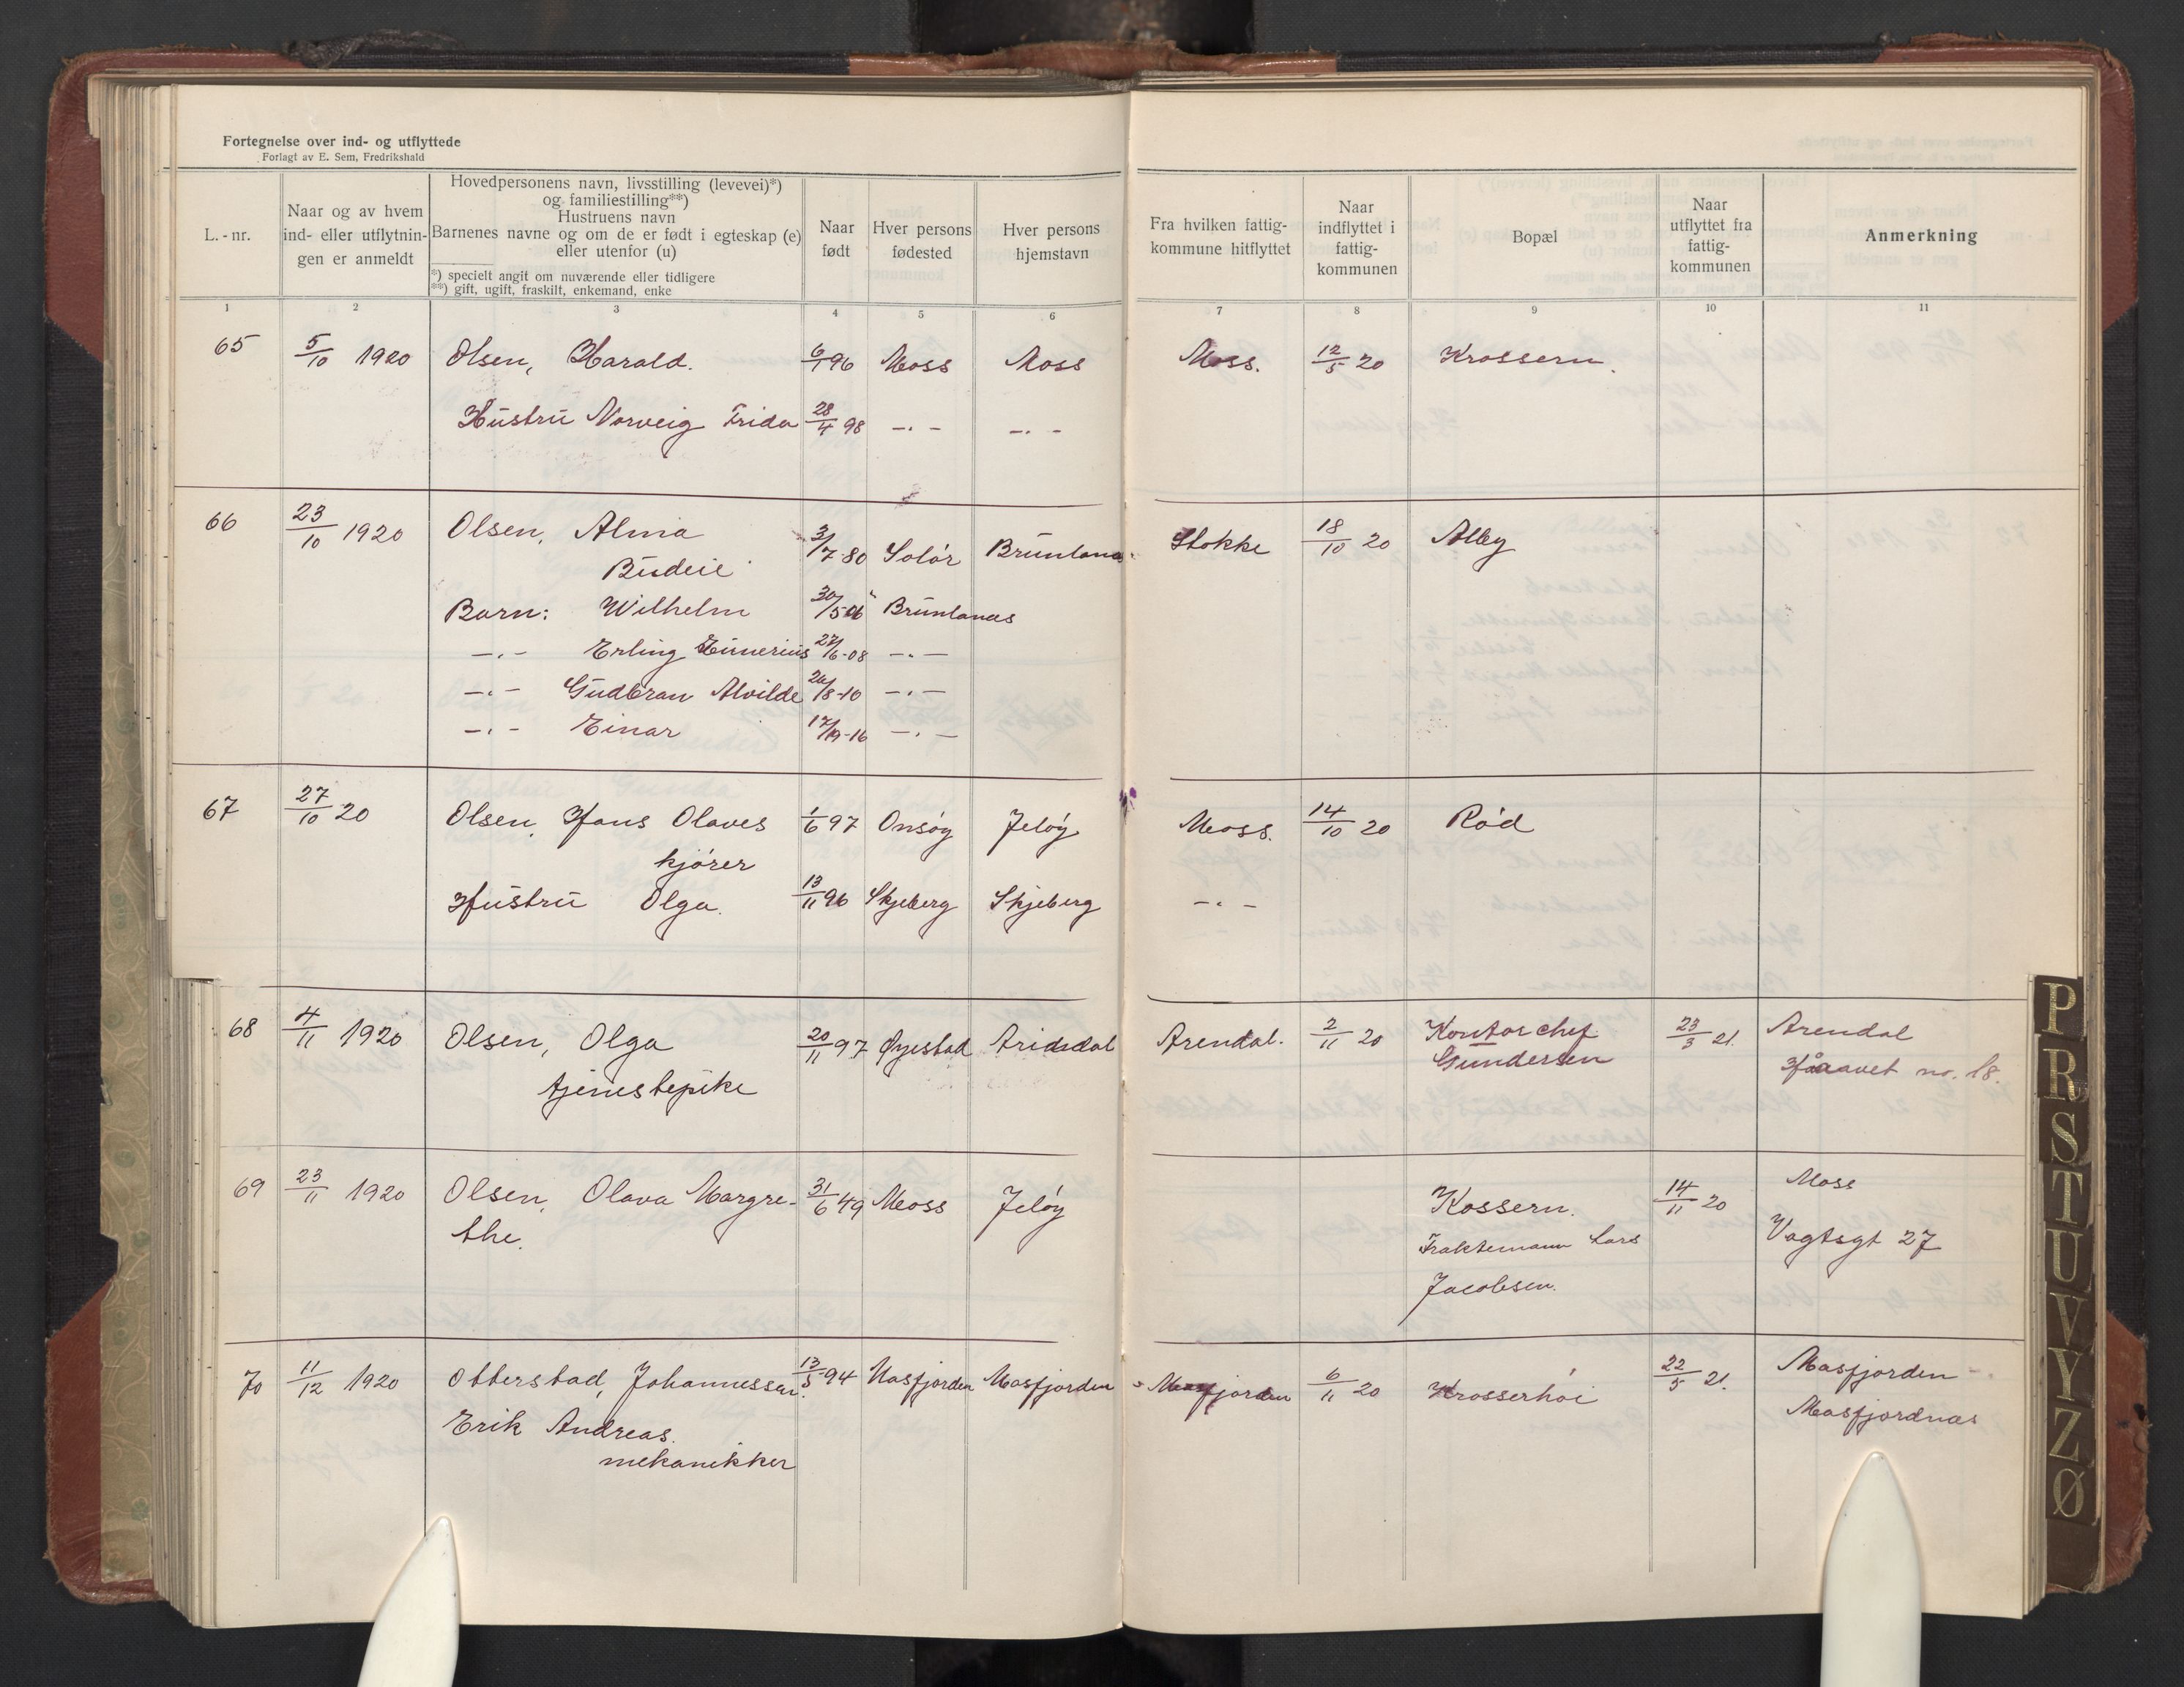 Fortegnelse over ind- og utflyttede
Forlagt av E. Sem, Fredrikshald
L.-nr.
Naar og av hvem
ind- eller utflytnin-
gen er anmeldt
Hovedpersonens navn, livsstilling (levevei)*)
og familiestilling**)
Hustruens navn
Barnenes navne og om de er født i egteskap (e)
eller utenfor (u)
*) specielt angit om nuværende eller tidligere
**) gift, ugift, fraskilt, enkemand, enke
Naar
født
Hver persons
fødested
Hver persons
hjemstavn
Fra hvilken fattig-
kommune hitflyttet
Naar
indflyttet i
fattig-
kommunen
Bopæl
Naar
utflyttet fra
fattig-
kommunen
Anmerkning
1 2 3 4 5 6 7 8 9 10 11
65 5/10 1920 Olsen, Harald. 6/1 96 Moss Moss Moss. 12/5 20 Krossern.
Hustru Norveig Frida 28/4 98 -.- -.-
66 23/10 1920 Olsen, Alma 3/7-80 Solør Brunlanes Stokke 18/10 20 Alby
Budeie
Barn: Wilhelm 30/5 06 Brunlanes
-.- Erling 27/6-08 -.-
-.- Gudbran Alvilde 26/8-10 -.-
-.- Einar 17/9-16 -.-
67 27/10 20 Olsen, Hans Olaves 1/6 97 Onsøy Jeløy Moss. 14/10 20 Rød
kjører
Hustru Olga. 13/11 96 Skjeberg Skjeberg -.-
68 4/11 1920 Olsen, Olga 20/11 97 Øyestad Arendal. 2/11 20 Kontorchef 23/3 21. Arendal
tjenestepike Gundersen no. 18.
69 23/11 1920 Olsen, Olava Margre- 31/6 49 Moss Jeløy Kossern. 14/11 20 Moss
the. Fraktemann Lars Vogtsgt 27
Jacobsen.
70 11/12 1920 Otterstad, Johannessen. 13/5 94 Masfjorden Masfjorden Masfjorden 6/11 20 Krosserhøi 22/5 21. Masfjorden
Erik Andreas. Masfjordnes
mekanikker
P
R
S
T
U
V
Y
Z
Ø